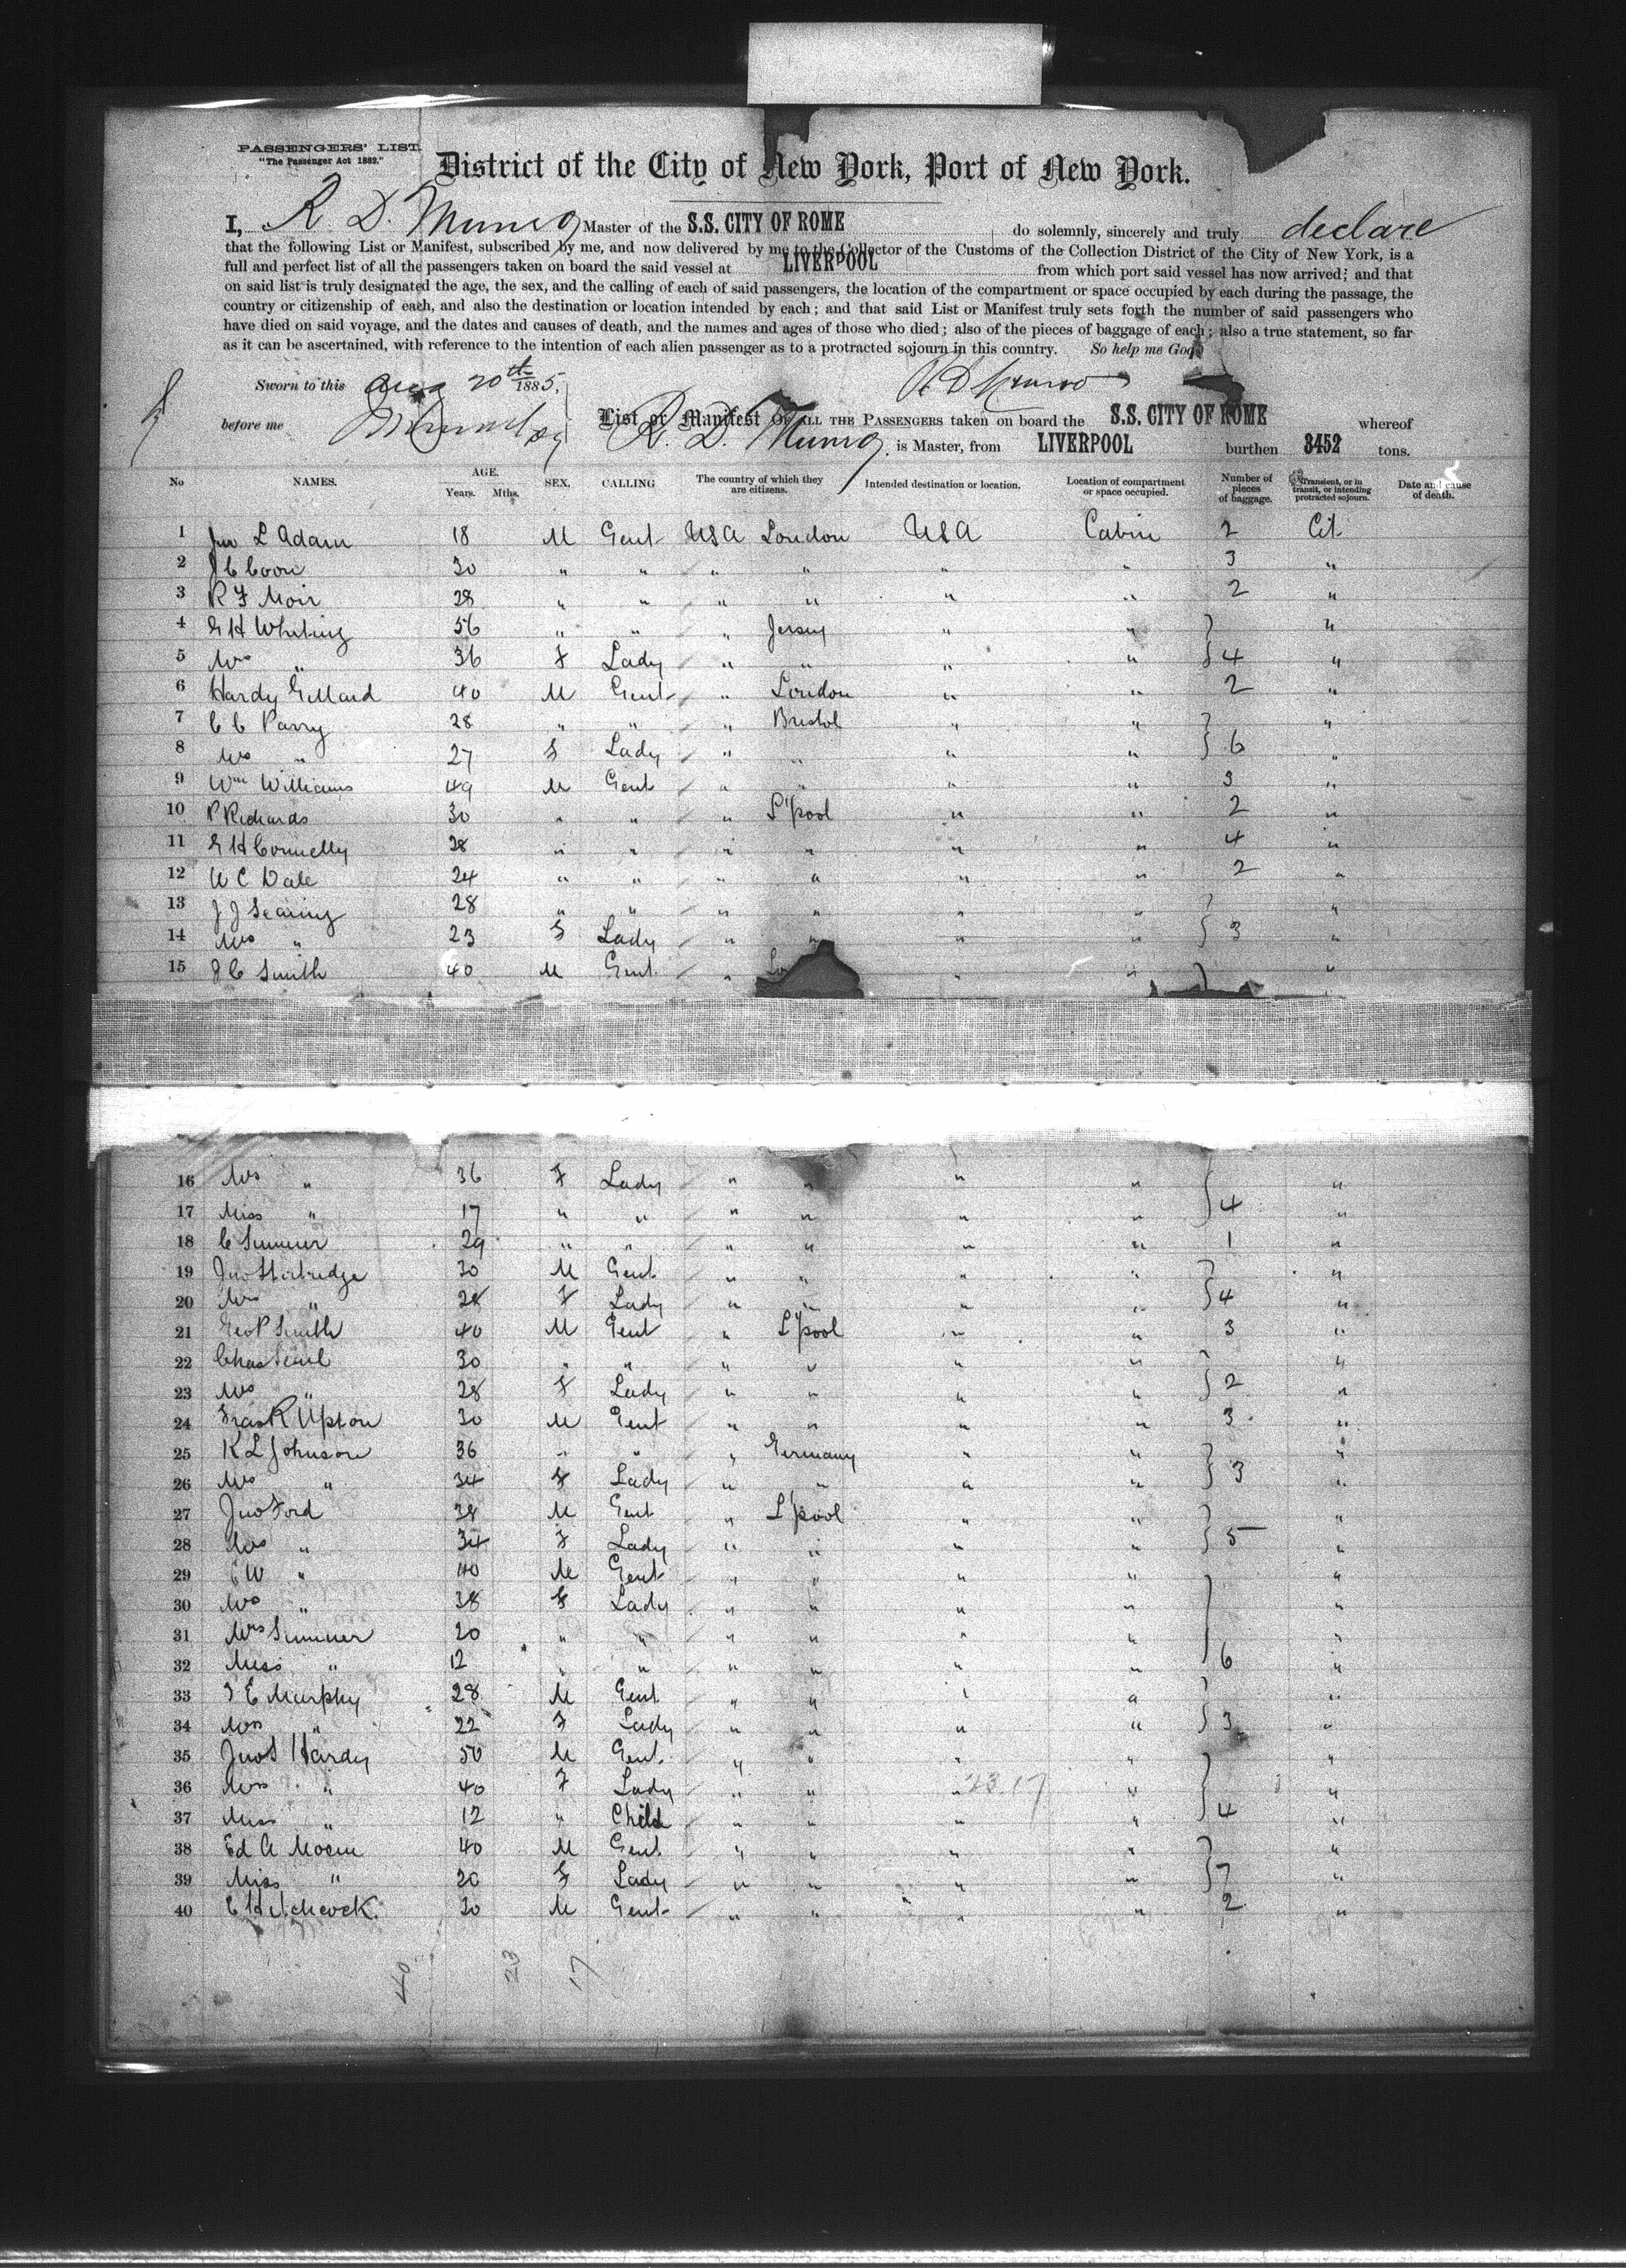 PASSENGERS' LIST.
"The Passenger Act 1882."
District of the City of New York, Port of New York.
I, R. D. Munro Master of the S.S. CITY OF ROME do solemnly, sincerely and truly declare
that the following List or Manifest, subscribed by me, and now delivered by me to the Collector of the Customs of the Collection District of the City of New York, is a
full and perfect list of all the passengers taken on board the said vessel at LIVERPOOL from which port said vessel has now arrived; and that
on said list is truly designated the age, the sex, and the calling of each of said passengers, the location of the compartment or space occupied by each during the passage, the
country or citizenship of each, and also the destination or location intended by each; and that said List or Manifest truly sets forth the number of said passengers who
have died on said voyage, and the dates and causes of death, and the names and ages of those who died; also of the pieces of baggage of each; also a true statement, so far
as it can be ascertained, with reference to the intention of each alien passenger as to a protracted sojourn in this country. So help me God
Sworn to this Aug 20th 1885. R D Munro
before me List or Manifest OF ALL THE PASSENGERS taken on board the S.S. CITY OF ROME whereof
R. D. Munro, is Master, from LIVERPOOL burthen 3452 tons.
No NAMES. AGE. Years. Mths. SEX. CALLING The country of which they are citizens. Intended destination or location. Location of compartment or space occupied. Number of pieces of baggage. Transient, or in transit, or intending protracted sojourn. Date and cause of death.
1 Jno L Adam 18 M Gent USA London USA Cabin 2 Cit.
2 J C Coon 30 " " " " " " 3 "
3 R F Moir 28 " " " " " " 2 "
4 G H Whiting 56 " " " Jersey " " "
5 Mrs " 36 F Lady " " " " 4 "
6 Hardy Gillard 40 M Gent " London " " 2 "
7 C C Parry 28 " " " Bristol " " "
8 Mrs " 27 F Lady " " " " 6 "
9 Wm Williams 49 M Gent " " " " 3 "
10 P Richards 30 " " " L'pool " " 2 "
11 G H Connelly 28 " " " " " " 4 "
12 W C Dale 24 " " " " " " 2 "
13 J J Searing 28 " " " " " " "
14 Mrs " 23 F Lady " " " " 3 "
15 J C Smith 40 M Gent. " Lo " " "
16 Mrs " 36 F Lady " " " " "
17 Miss " 17 " " " " " " 4 "
18 C Sumner 29 " " " " " " 1 "
19 Jno 30 M Gent. " " " " "
20 Mrs " 28 F Lady " " " " 4 "
21 Geo P Smith 40 M Gent " L'pool " " 3 "
22 Chas 30 " " " " " " "
23 Mrs " 28 F Lady " " " " 2 "
24 Fras R Upton 30 M Gent " " " " 3 "
25 K L Johnson 36 " " " Germany " " "
26 Mrs " 34 F Lady " " " " 3 "
27 Jno Ford 38 M Gent " L'pool " " "
28 Mrs " 34 F Lady " " " " 5 "
29 W " 40 M Gent " " " " "
30 Mrs " 38 F Lady " " " " "
31 Mrs Sumner 20 " " " " " " "
32 Miss " 12 " " " " " " 6 "
33 T E Murphy 28 M Gent " " " " "
34 Mrs " 22 F Lady " " " " 3 "
35 Jno S Hardy 50 M Gent. " " " " "
36 Mrs " 40 F Lady " " " 23.17 " "
37 Miss " 12 " Child " " " " 4 "
38 Ed A 40 M Gent. " " " " "
39 Miss " 20 F Lady " " " " 7 "
40 E Hitchcock. 30 M Gent " " " " 2 "
40 23 17